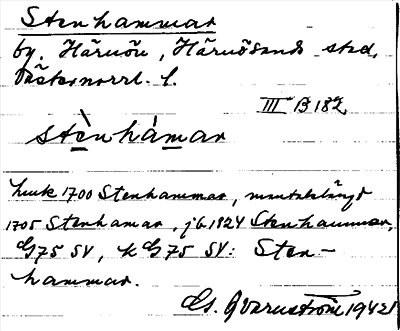 Stenhammar
by, Härnön, Härnösands stad,
Västernorrl. l.
III B 182
stènhámar
huk 1700 Stenhammar, mantalslängd
1705 Stenhamar, jb 1824 Stenhammar,
G75 SV, k G75 SV: Sten-
hammar.
Gs. Qvarnström 1942